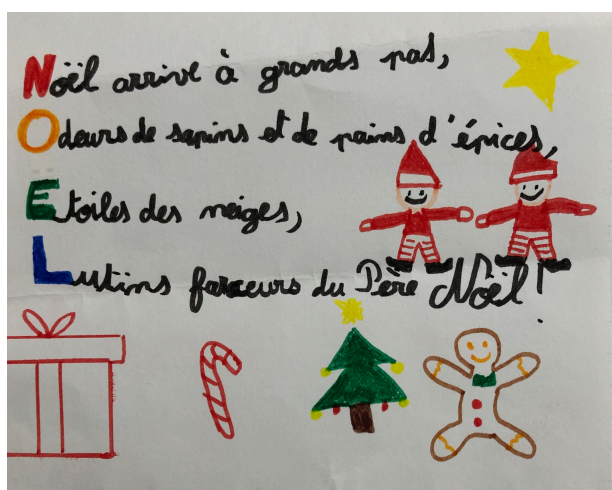 Noël arrive à grands pas,
Odeurs de sapins et de pains d'épices,
Etoiles des neiges,
Lutins farceurs du Père Noël !